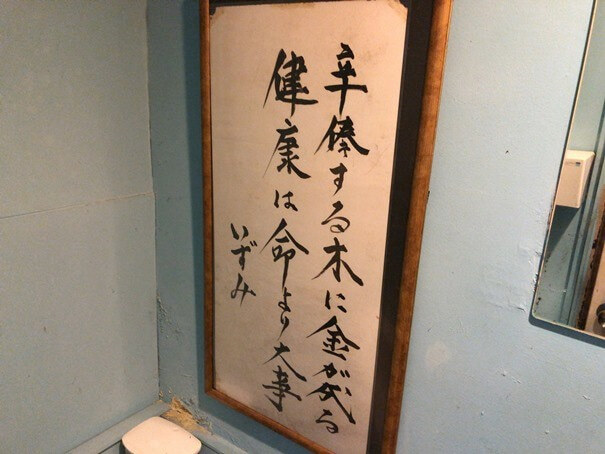 辛俸する木に金が成る
健康は命より大事
いずみ